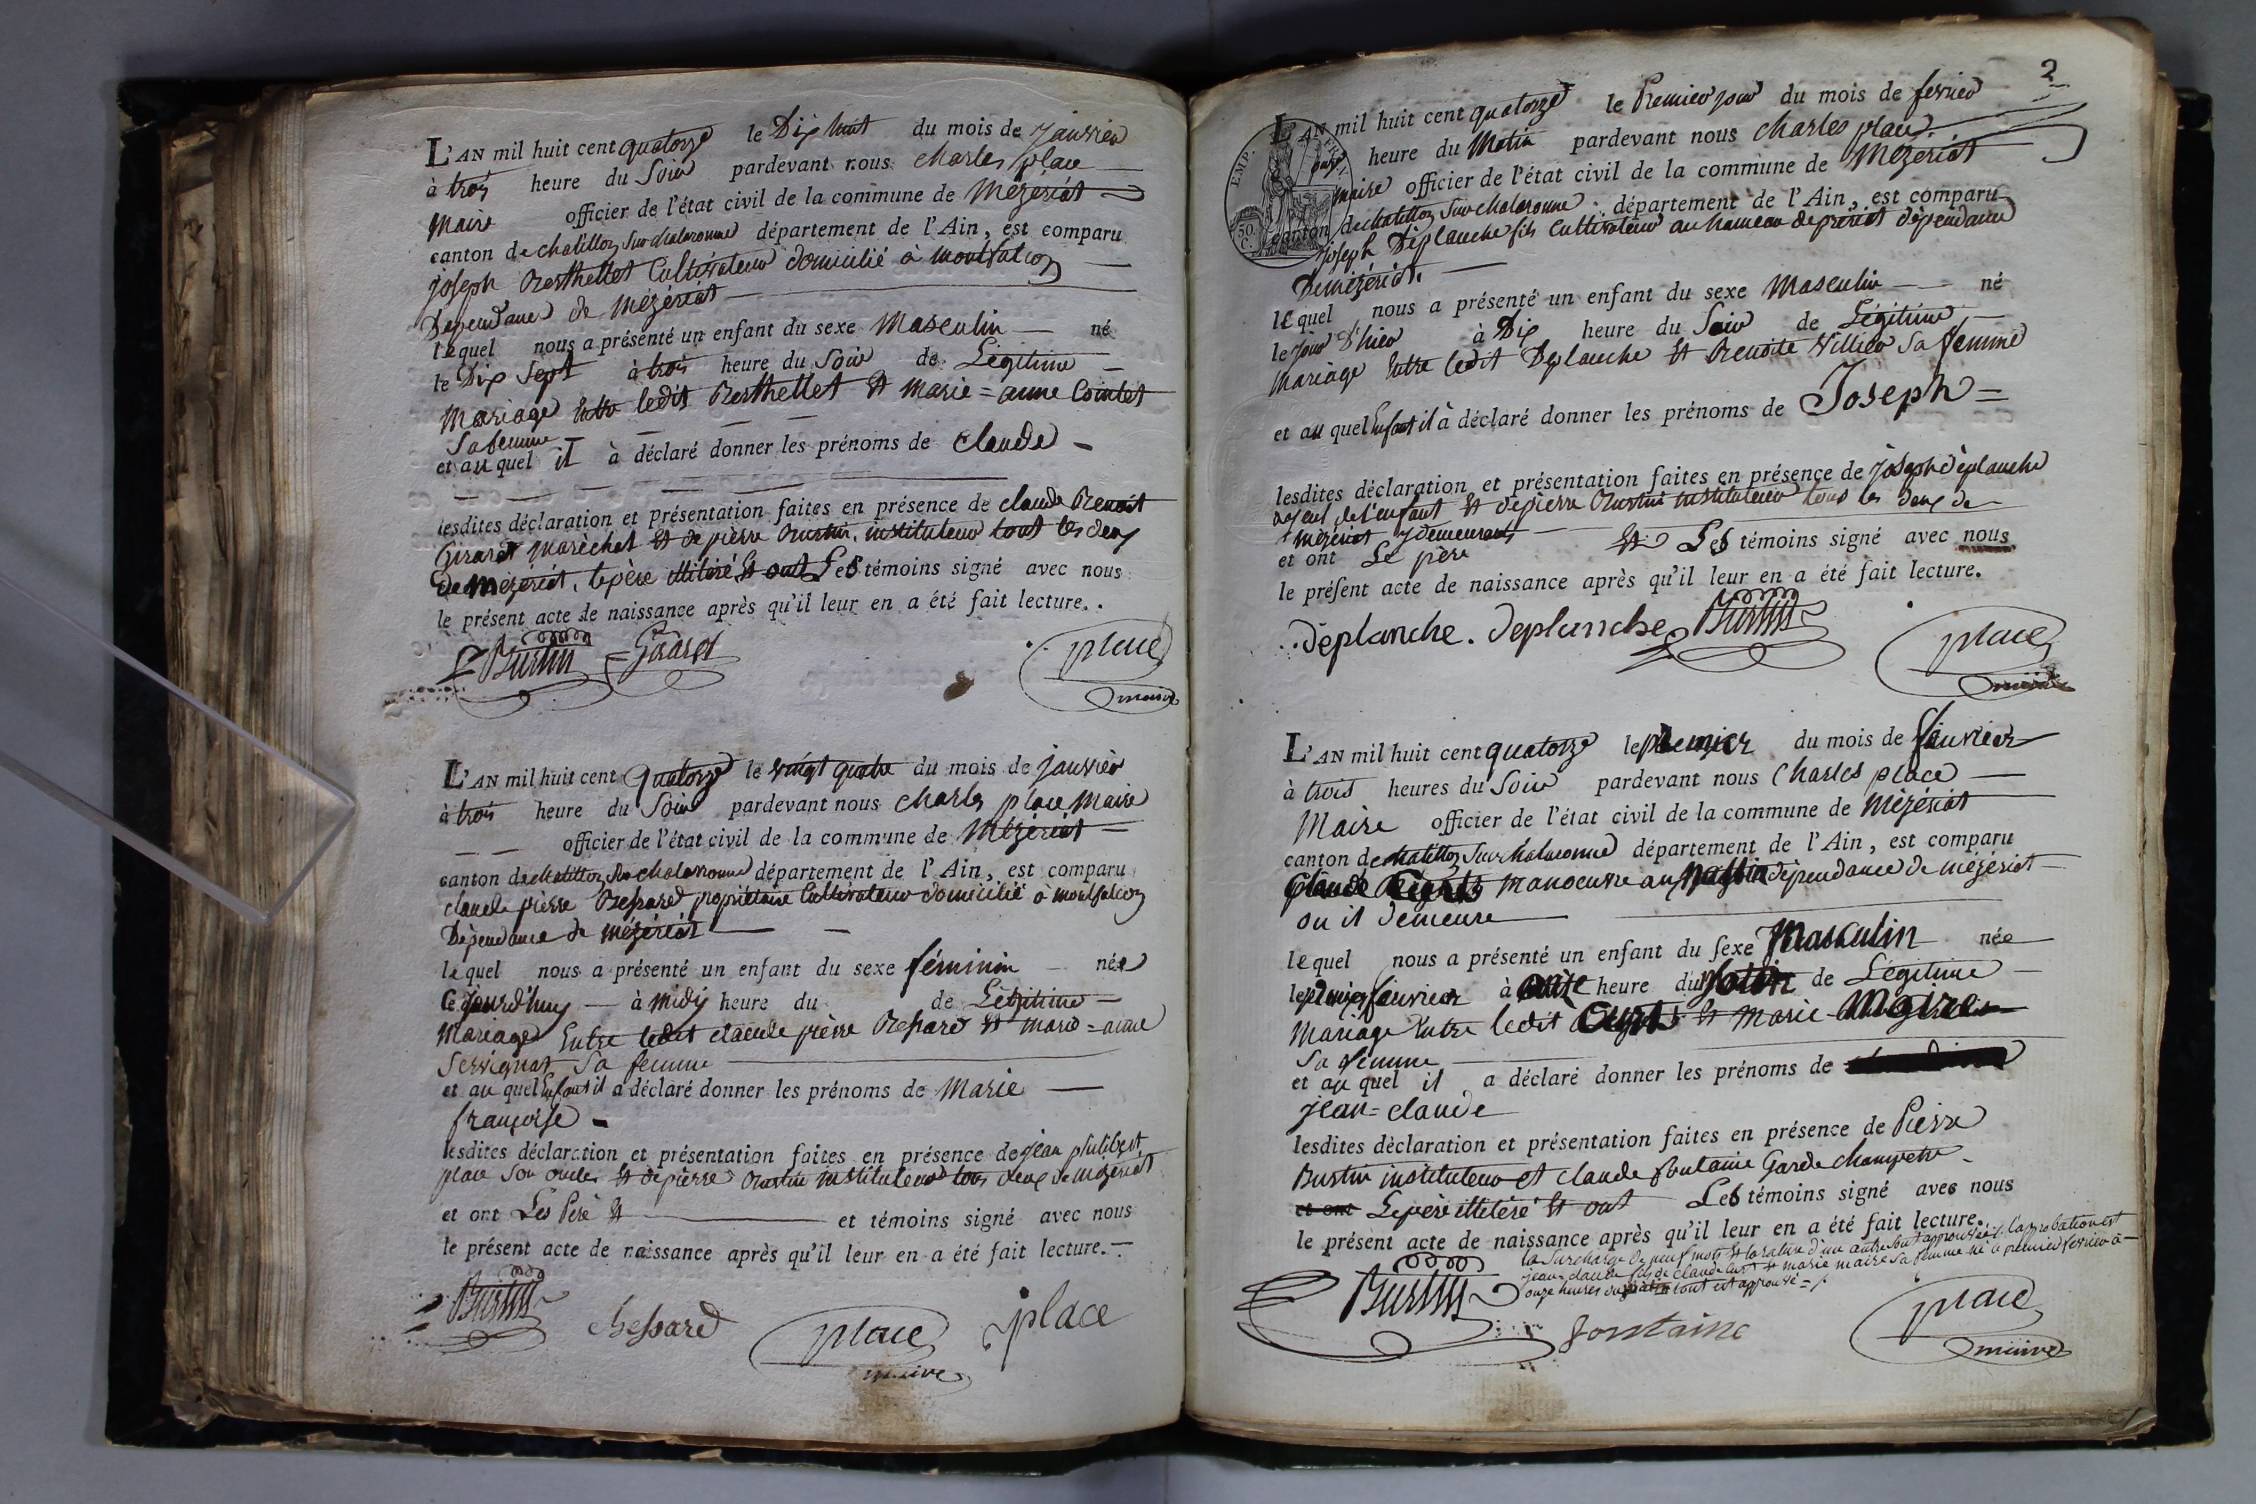 L'AN mil huit cent quatorze le Dix huit du mois de janvier
à trois heure du Soir pardevant nous charles place
Maire officier de l'état civil de la commune de Mézériat
canton de chatillon Sur chalaronne département de l'Ain, est comparu
joseph Berthellet Cultivateur domicilié à montfalcon
Dépendance de Mézériat
lequel nous a présenté un enfant du sexe Masculin né
le Dix Sept à trois heure du Soir de Légitime
Mariage Entre ledit Berthellet Et Marie = anne Cointet
Sa femme
et au quel il à déclaré donner les prénoms de claude
lesdites déclaration et présentation faites en présence de claude Benoit
Girard maréchal Et de pierre Burtin, instituteur tout les deux
de Mézériat, le père illiteré Et ont Les témoins signé avec nous
le présent acte de naissance après qu'il leur en a été fait lecture.
Burtin Girard place
maire
L'AN mil huit cent Quatorze le vingt quatre du mois de janvier
à trois heure du Soir pardevant nous charles place Maire
officier de l'état civil de la commune de Mézériat
canton de chatillon Sur chalaronne département de l'Ain, est comparu
claude pierre propriétaire Cultivateur domicilié à montfalcon
Dépendance de Mézériat
lequel nous a présenté un enfant du sexe féminin née
Ce jourd'huy à midy heure du de Légitime
Mariage Entre ledit claude pierre Et marie = anne
Servignat Sa femme
et au quel Enfant il a déclaré donner les prénoms de Marie
françoise
lesdites déclaration et présentation faites en présence de jean philibert
place Son oncle Et de pierre Burtin instituteur tous deux de mézériat
et ont Les Père Et et témoins signé avec nous
le présent acte de naissance après qu'il leur en a été fait lecture.
Burtin place place
maire
2
EMP. FR.
50 C.
L'AN mil huit cent quatorze le Premier jour du mois de fevrier
onze heure du Matin pardevant nous charles place
maire officier de l'état civil de la commune de Mézériat
canton de chatillon Sur chalaronne département de l'Ain, est comparu
joseph Déplanche fils Cultivateur au hameau de dépendance
De mézériat.
lequel nous a présenté un enfant du sexe Masculin né
le jour D'hier à Dix heure du Soir de Légitime
Mariage Entre ledit Déplanche Et Benoite Villier Sa femme
et au quel Enfant il à déclaré donner les prénoms de Joseph =
lesdites déclaration et présentation faites en présence de joseph déplanche
ayeul de l'enfant Et de pierre Burtin instituteur tous les deux de
Mézériat y demeurants
et ont Le père Et Les témoins signé avec nous
le présent acte de naissance après qu'il leur en a été fait lecture.
déplanche. deplanche Burtin place
maire
L'AN mil huit cent quatorze le premier du mois de fauvrier
à trois heures du Soir pardevant nous Charles place
Maire officier de l'état civil de la commune de Mézériat
canton de chatillon Sur chalaronne département de l'Ain, est comparu
Claude manoeuvre au dépendance de mézériat
ou il demeure
lequel nous a présenté un enfant du sexe Masculin née
le fauvrier à onze heure du Matin de Légitime
Mariage Entre ledit Curt Et Marie Maire
Sa femme
et au quel il a déclaré donner les prénoms de
jean = claude
lesdites déclaration et présentation faites en présence de Pierre
Burtin instituteur et claude fontaine Garde champetre
et ont Le père illiteré Et ont Les témoins signé avec nous
le présent acte de naissance après qu'il leur en a été fait lecture.
la Surcharge de neuf mots Et la rature d'un autre L'approbation est
jean = claude fils de claude Curt Et marie maire Sa femme né le premier fevrier à
onze heures du matin tout est approuvé
Burtin fontaine place
maire